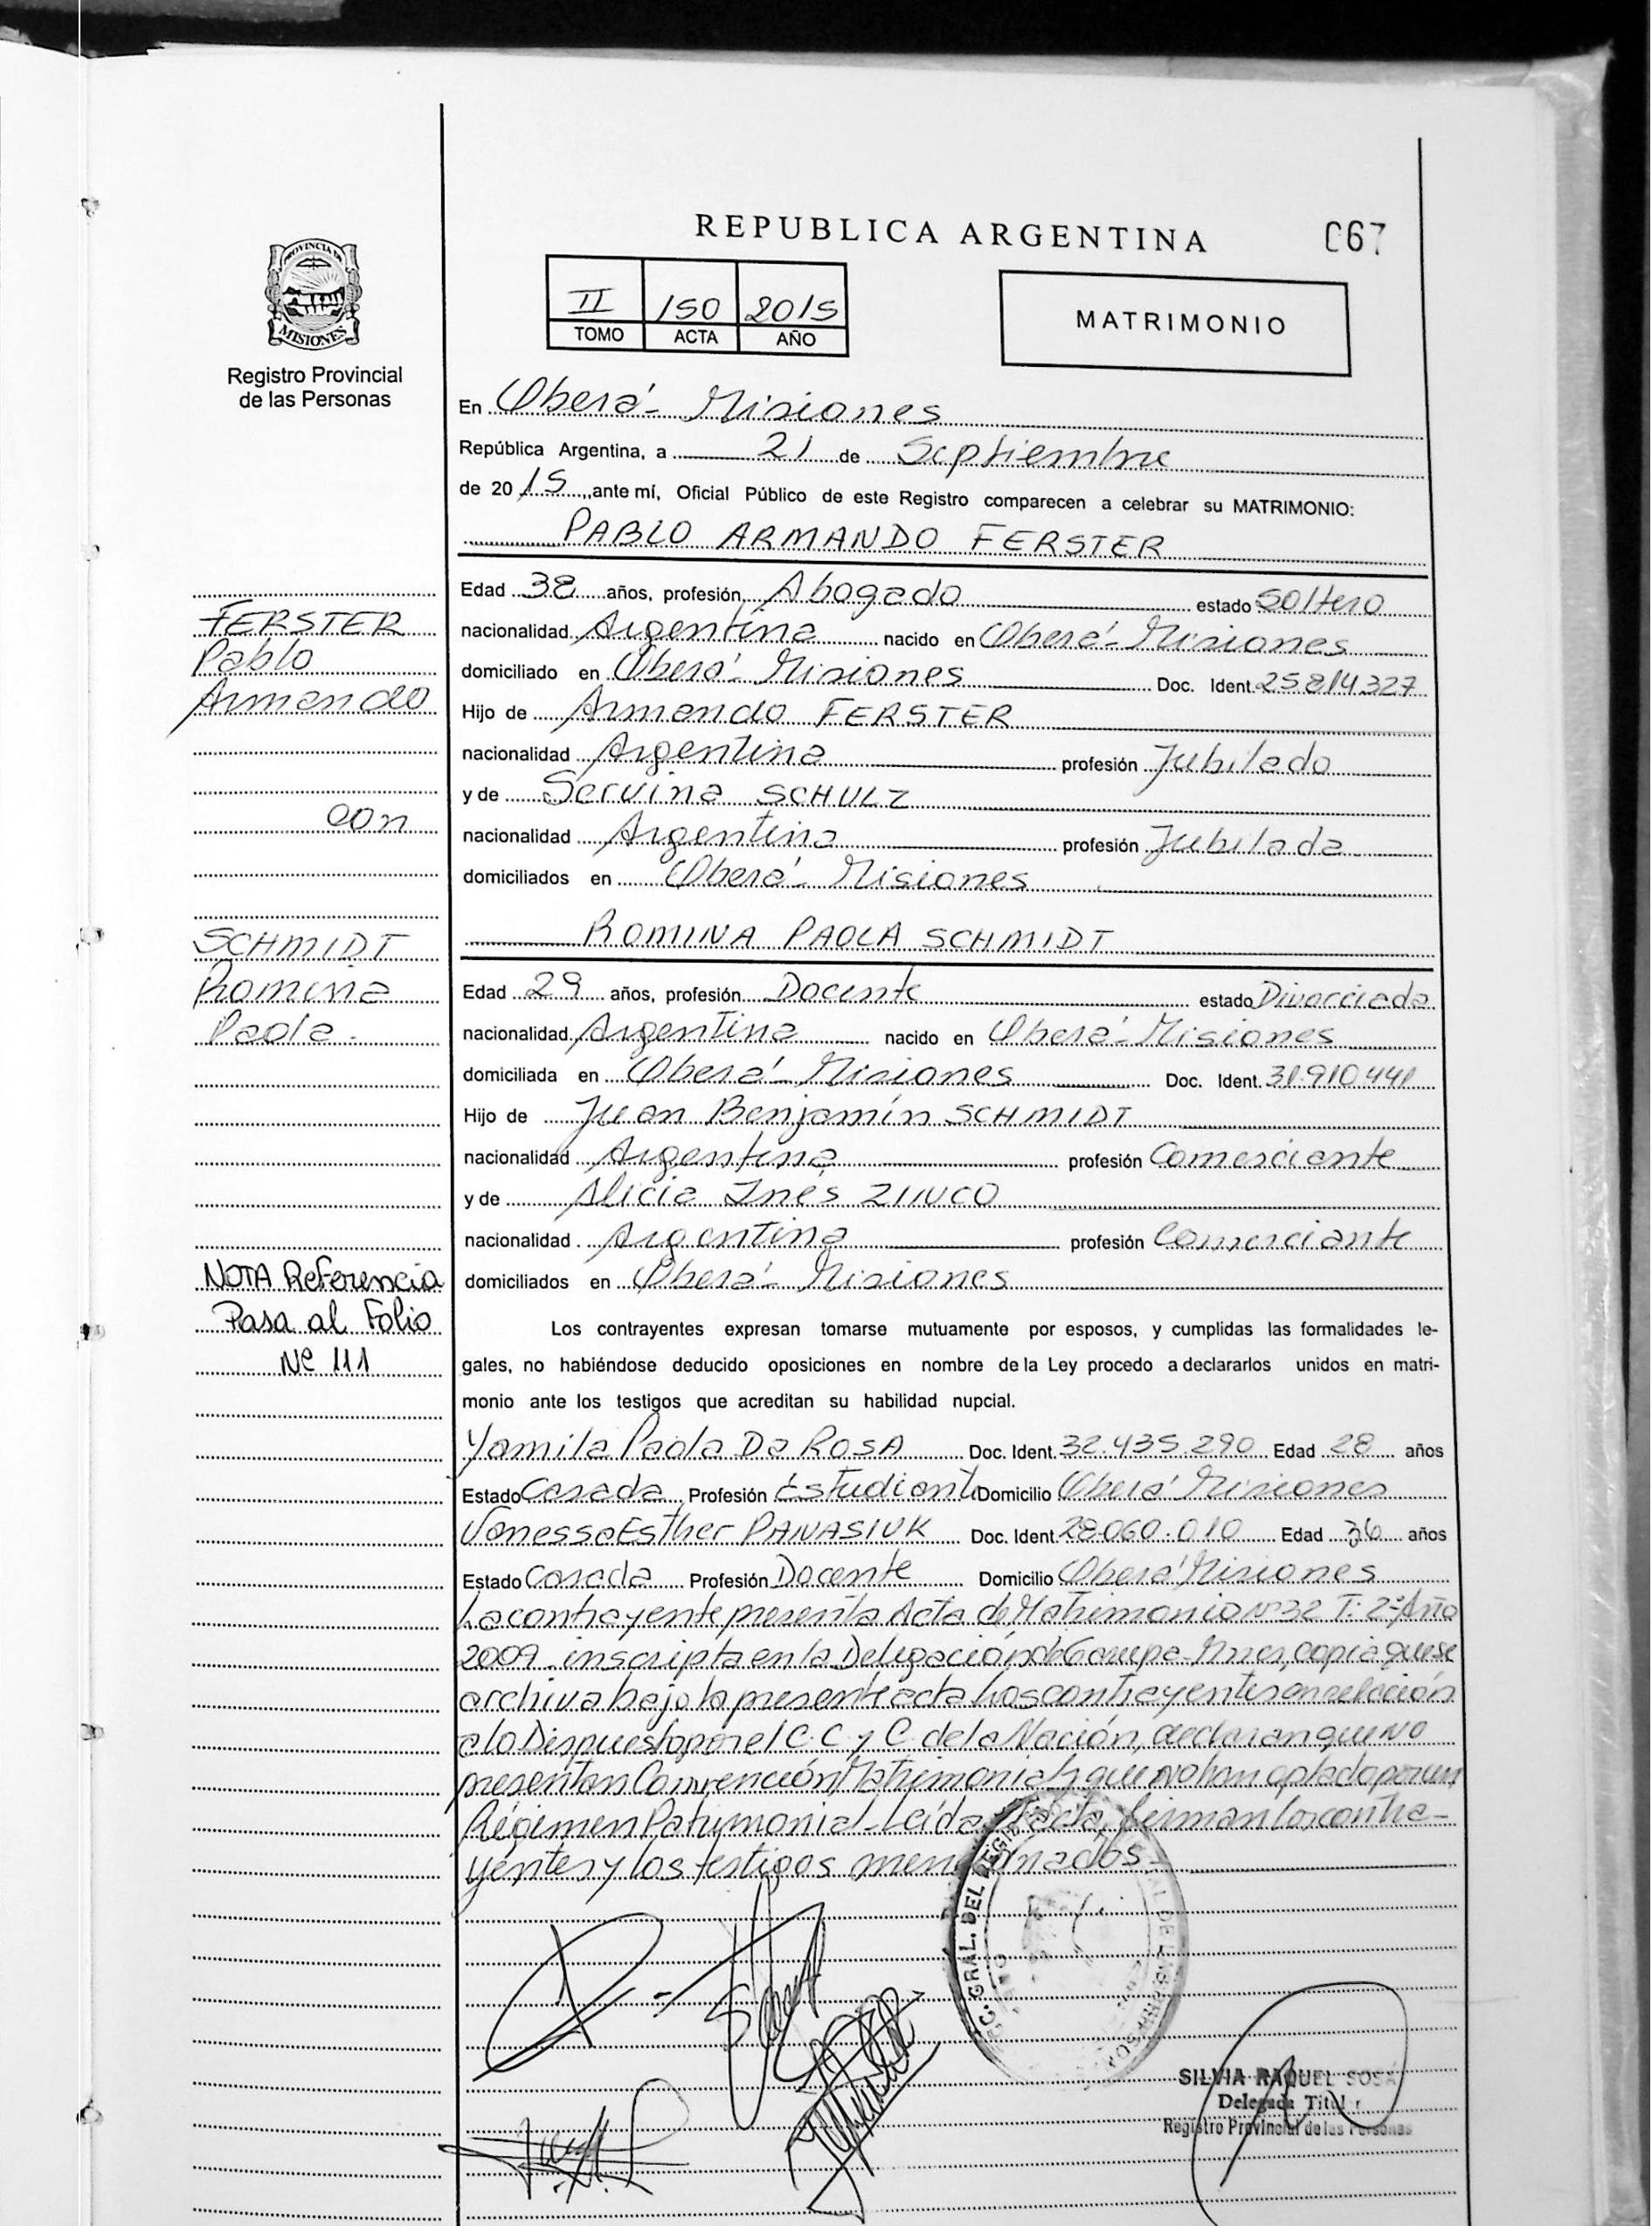 REPUBLICA ARGENTINA
067
PROVINCIA DE
MISIONES
Registro Provincial
de las Personas
II 150 2015
TOMO ACTA AÑO
MATRIMONIO
En Oberá - Misiones
República Argentina, a 21 de Septiembre
de 20 15, ante mí, Oficial Público de este Registro comparecen a celebrar su MATRIMONIO:
PABLO ARMANDO FERSTER
Edad 38 años, profesión Abogado estado Soltero
nacionalidad Argentina nacido en Oberá - Misiones
domiciliado en Oberá - Misiones Doc. Ident. 25814327
Hijo de Armando FERSTER
nacionalidad Argentina profesión Jubilado
y de Servina SCHULZ
nacionalidad Argentina profesión Jubilada
domiciliados en Oberá - Misiones
ROMINA PAOLA SCHMIDT
Edad 29 años, profesión Docente estado Divorciada
nacionalidad Argentina nacido en Oberá - Misiones
domiciliada en Oberá - Misiones Doc. Ident. 31.910.441
Hijo de Juan Benjamín SCHMIDT
nacionalidad Argentina profesión Comerciante
y de Alicia Inés
nacionalidad Argentina profesión Comerciante
domiciliados en Oberá - Misiones
Los contrayentes expresan tomarse mutuamente por esposos, y cumplidas las formalidades le-
gales, no habiéndose deducido oposiciones en nombre de la Ley procedo a declararlos unidos en matri-
monio ante los testigos que acreditan su habilidad nupcial.
Yamila Paola Da ROSA Doc. Ident. 32.435.290 Edad 28 años
Estado Casada Profesión Estudiante Domicilio Oberá Misiones
Vanessa Esther PANASIUK Doc. Ident. 28.060.010 Edad 36 años
Estado Casada Profesión Docente Domicilio Oberá Misiones
La contrayente presenta Acta de Matrimonio Nº 32 T: 2º Año
2009 inscripta en la Delegación de Garupa - Mnes, copia que se
archiva bajo la presente acta Los contrayentes en relación
a lo Dispuesto por el C.C. y C. de la Nación, declaran que NO
presentan Convención Matrimonial y que NO han optado por un
Régimen Patrimonial - Leída el acta, firman los contra-
yentes y los testigos mencionados -
FERSTER
Pablo
Armando
con
SCHMIDT
Romina
Paola.
NOTA Referencia
Pasa al Folio
Nº 111
GRAL. DEL REGIS
SILVIA RAQUEL SOSA
Delegada Titular
Registro Provincial de las Personas